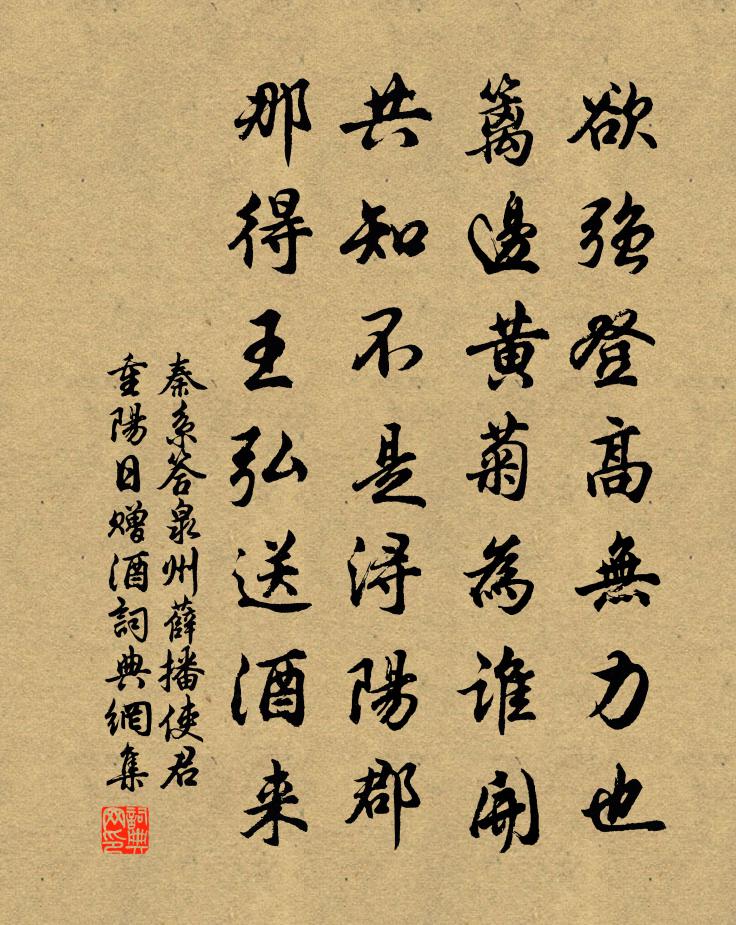 欲强登高無力也
籬邊黄菊為誰開
共知不是潯陽郡
那得王弘送酒来
秦系答泉州薛播使君
重陽日贈酒詞典網集
詞典网印